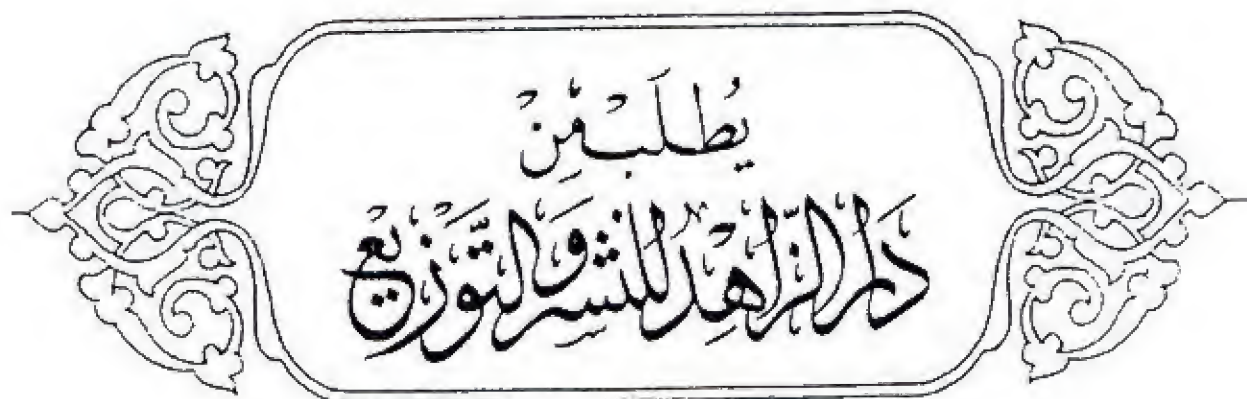 يُطْلَبُ مِنْ
دَارِ الزَّاهِدِ لِلنَّشْرِ وَالتَّوْزِيعِ